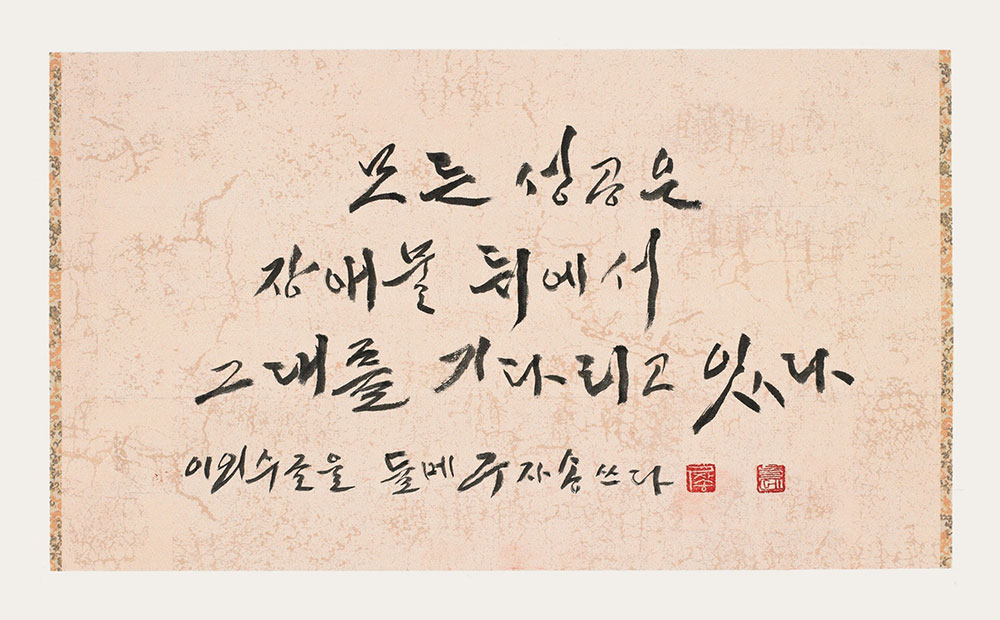 모든 성공은
장애물 뒤에서
그대를 기다리고 있다
이외수글을 들메 주자송 쓰다